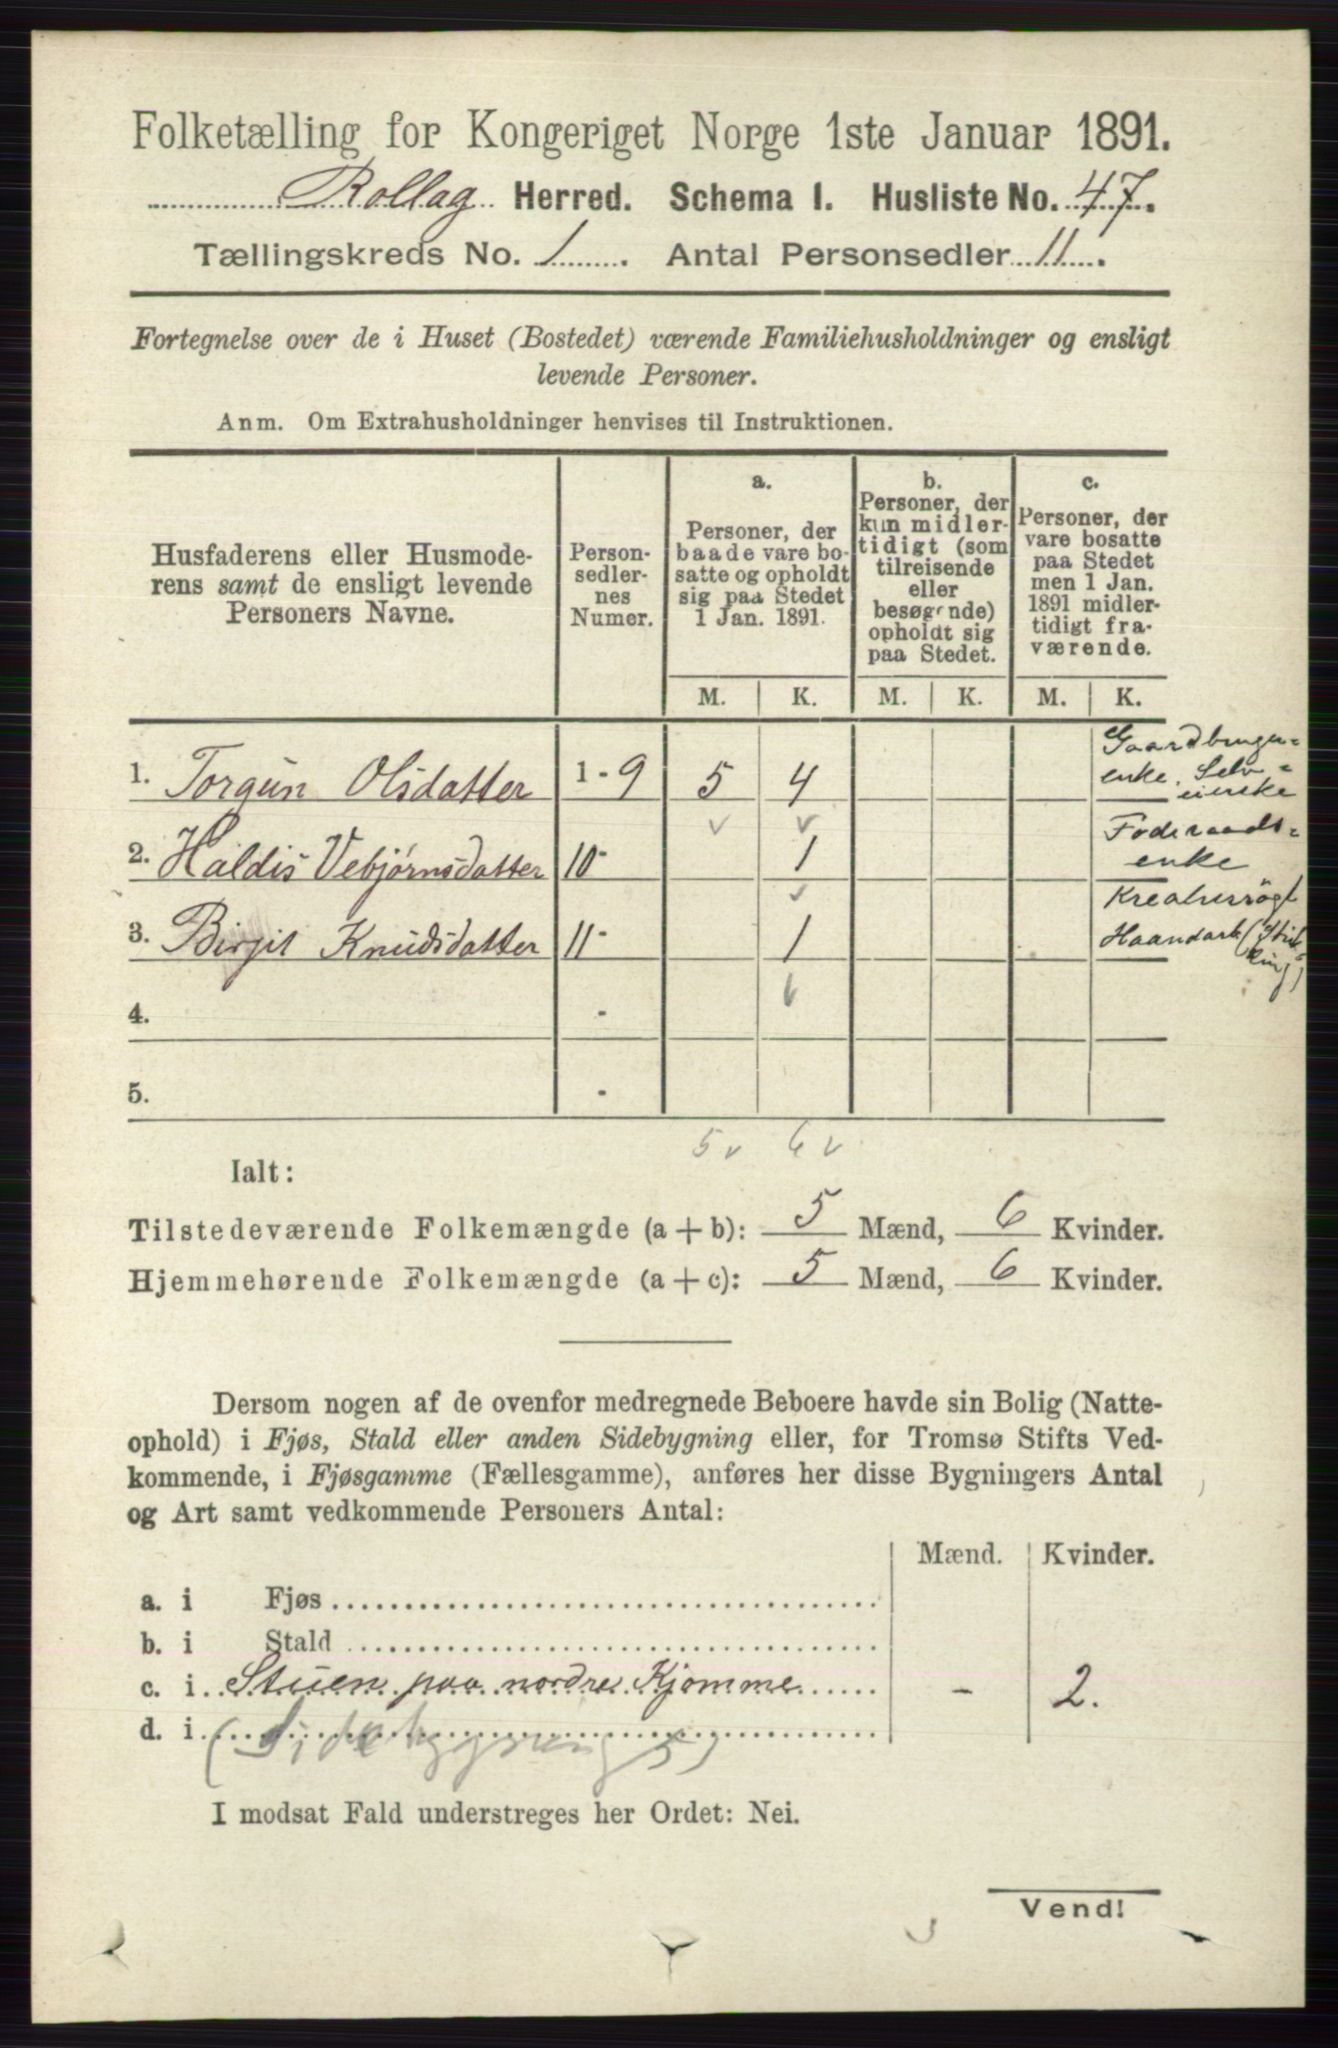 Folketælling for Kongeriget Norge 1ste Januar 1891.
Rollag Herred. Schema I. Husliste No. 47.
Tællingskreds No. 1. Antal Personsedler 11.
Fortegnelse over de i Huset (Bostedet) værende Familiehusholdninger og ensligt
levende Personer.
Anm. Om Extrahusholdninger henvises til Instruktionen.
Husfaderens eller Husmode-
rens samt de ensligt levende
Personers Navne.
Person-
sedler-
nes
Numer.
a.
Personer, der
baade vare bo-
satte og opholdt
sig paa Stedet
1 Jan. 1891.
b.
Personer, der
kun midler-
tidigt (som
tilreisende
eller
besøgende)
opholdt sig
paa Stedet.
c.
Personer, der
vare bosatte
paa Stedet
men 1 Jan.
1891 midler-
tidigt fra-
værende.
M. K. M. K. M. K.
1. Torgun Olsdatter 1 - 9 5 4 Gaardbruger-
enke. Selv-
eierske
2. Haldis Vebjørnsdatter 10 - 1 Føderaads-
enke
3. Birgit Knudsdatter 11 - 1 Kreaturrøgt
Haandarb (Strik-
king)
4. -
5. -
5 v 6 v
Ialt:
Tilstedeværende Folkemængde (a + b): 5 Mænd, 6 Kvinder.
Hjemmehørende Folkemængde (a + c): 5 Mænd, 6 Kvinder.
Dersom nogen af de ovenfor medregnede Beboere havde sin Bolig (Natte-
ophold) i Fjøs, Stald eller anden Sidebygning eller, for Tromsø Stifts Ved-
kommende, i Fjøsgamme (Fællesgamme), anføres her disse Bygningers Antal
og Art samt vedkommende Personers Antal:
Mænd. Kvinder.
a. i Fjøs
b. i Stald
c. i Stuen paa nordre Kjomme - 2.
d. i
(Sidebygning)
I modsat Fald understreges her Ordet: Nei.
Vend!